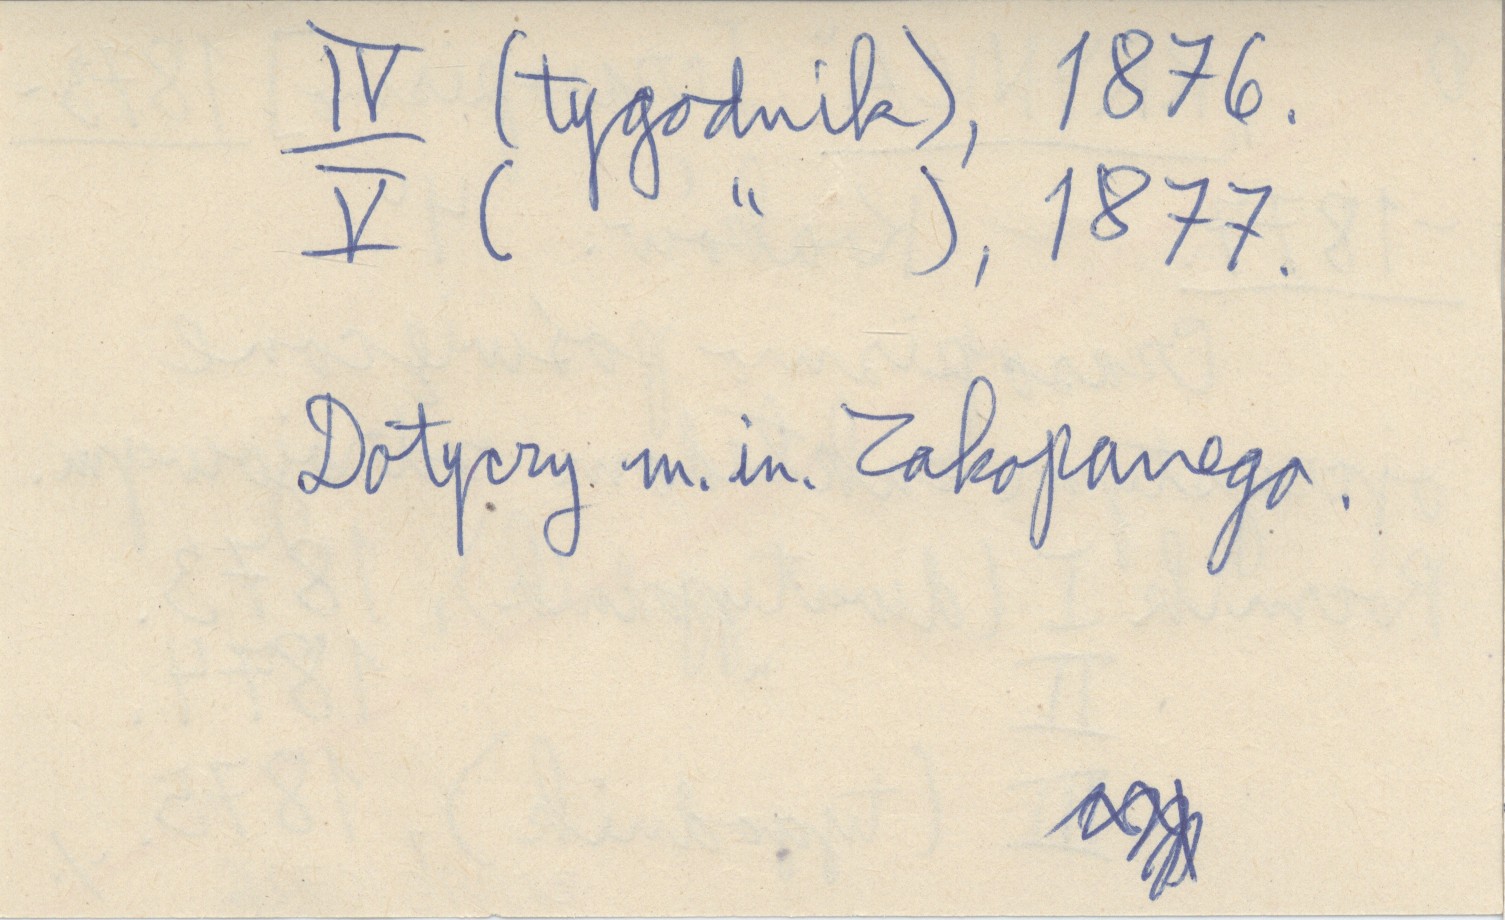 IV (tygodnik), 1876.
V ( " ), 1877.
Dotyczy m. in. Zakopanego.